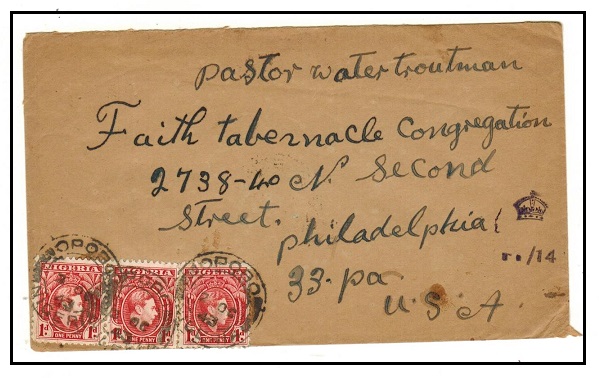 Pastor water troutman
Faith tabernacle Congregation
2738-40 N. Second
Street.
philadelphia
33. pa
U.S.A.
/14
OPOBO
OPOBO
NIGERIA NIGERIA NIGERIA
1d 1d 1d
ONE PENNY ONE PENNY ONE PENNY